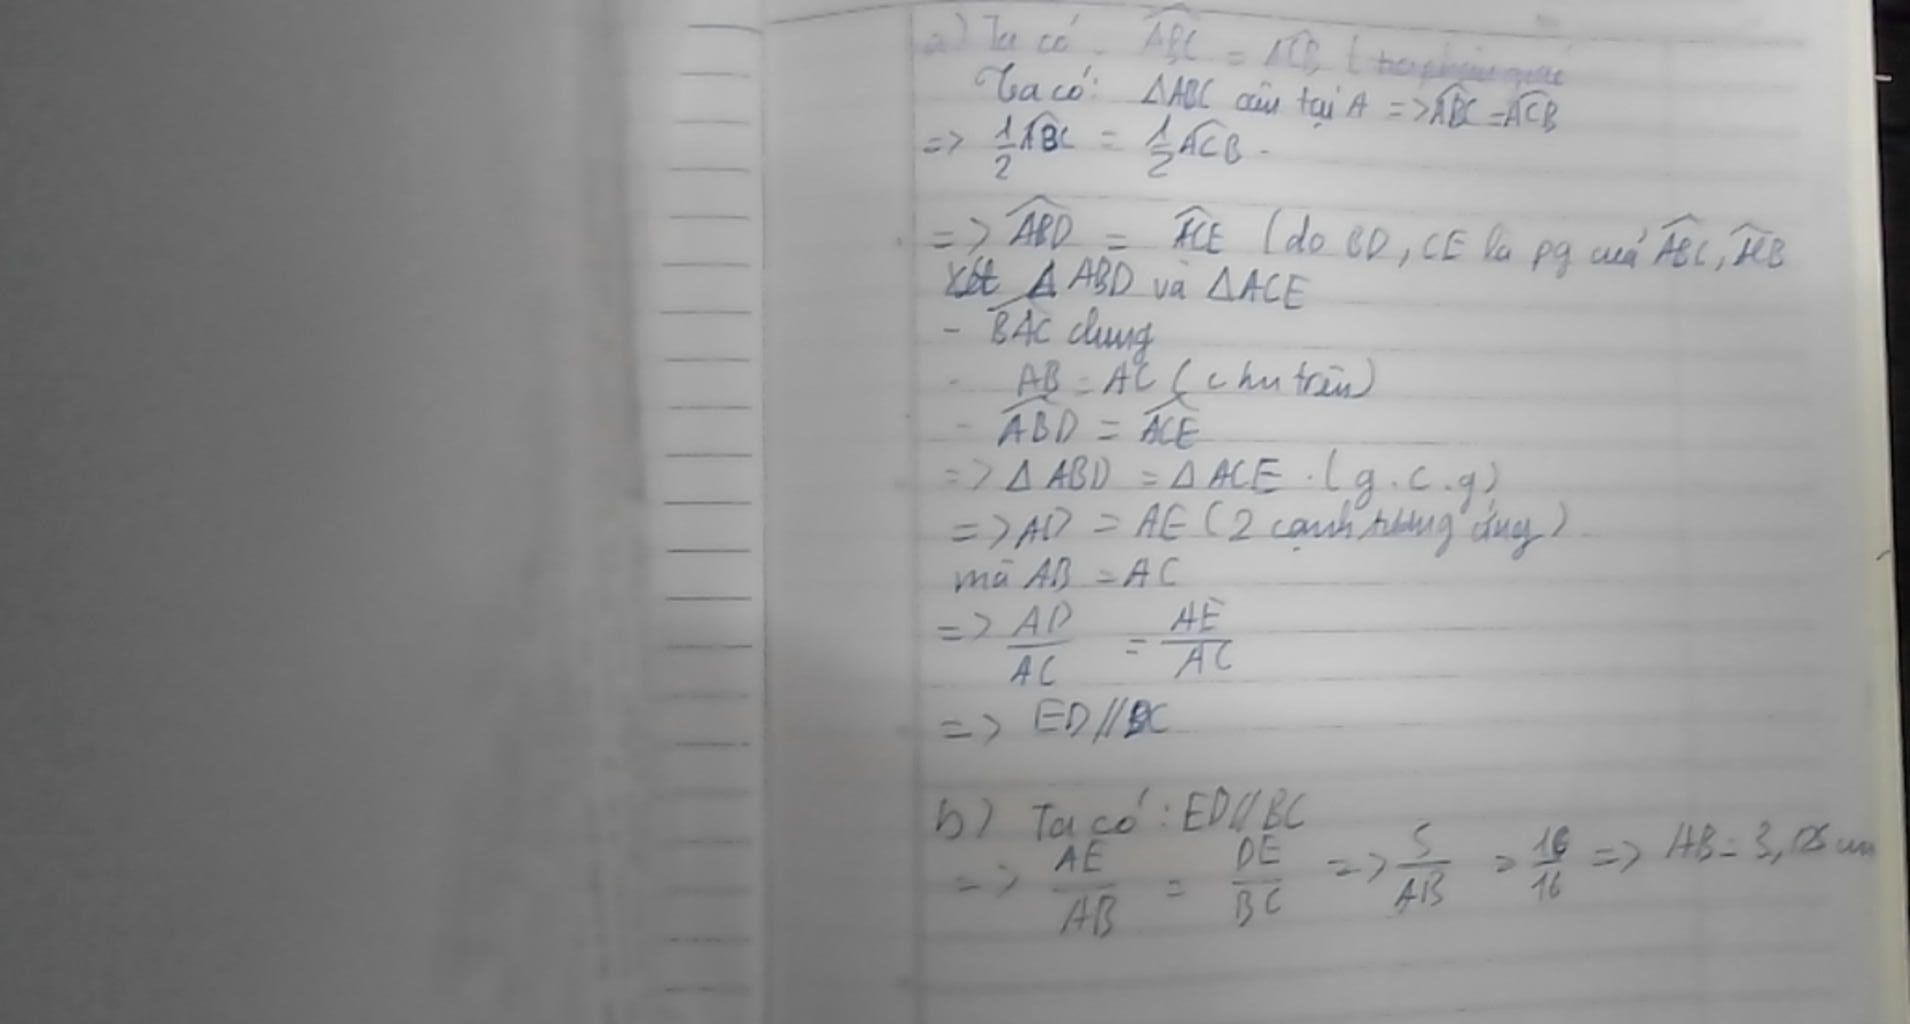 a) Ta có ABC = ACB (
Ta có: ΔABC cân tại A => ABC = ACB
=> 1/2 ABC = 1/2 ACB.
=> ABD = ACE (do BD, CE là pg của ABC, ACB
Xét Δ ABD và ΔACE
- BAC chung
- AB = AC (chm trên)
- ABD = ACE
=> Δ ABD = Δ ACE. (g.c.g)
=> AD = AE (2 cạnh tương ứng)
mà AB = AC
=> AD/AC = AE/AC
=> ED//BC
b) Ta có: ED//BC
=> AE/AB = DE/BC => 5/AB = 16 => AB = 3, cm